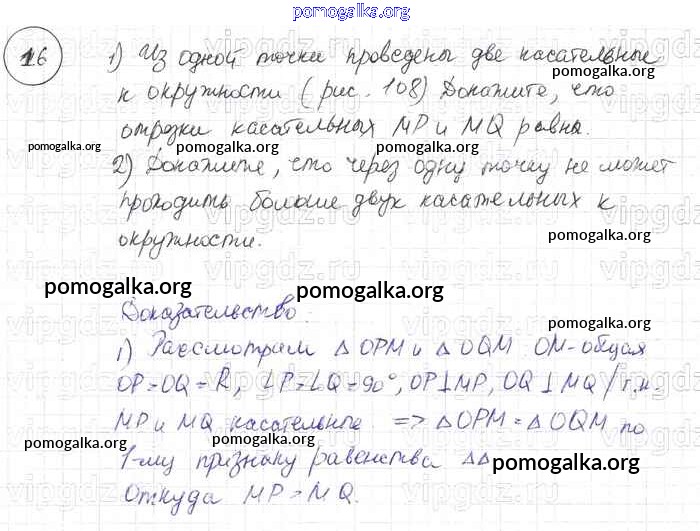 pomogalka.org
16 1) Из одной точки проведены две касательные
pomogalka.org
к окружности (рис. 108) Докажите, что
pomogalka.org
отрезки касательных MP и MQ равны.
pomogalka.org pomogalka.org
2) Докажите, что через одну точку не может
проходить больше двух касательных к
окружности.
pomogalka.org
pomogalka.org pomogalka.org
Доказательство:
pomogalka.org
1) Рассмотрим △ OPM и △ OQM OM-общая
OP=OQ=R, ∠P=∠Q=90°, OP⊥MP, OQ⊥MQ /т.к
MP и MQ касательные => △OPM=△OQM по
pomogalka.org pomogalka.org
1-му признаку равенства △△
pomogalka.org
Откуда MP=MQ.
vipgdz.ru